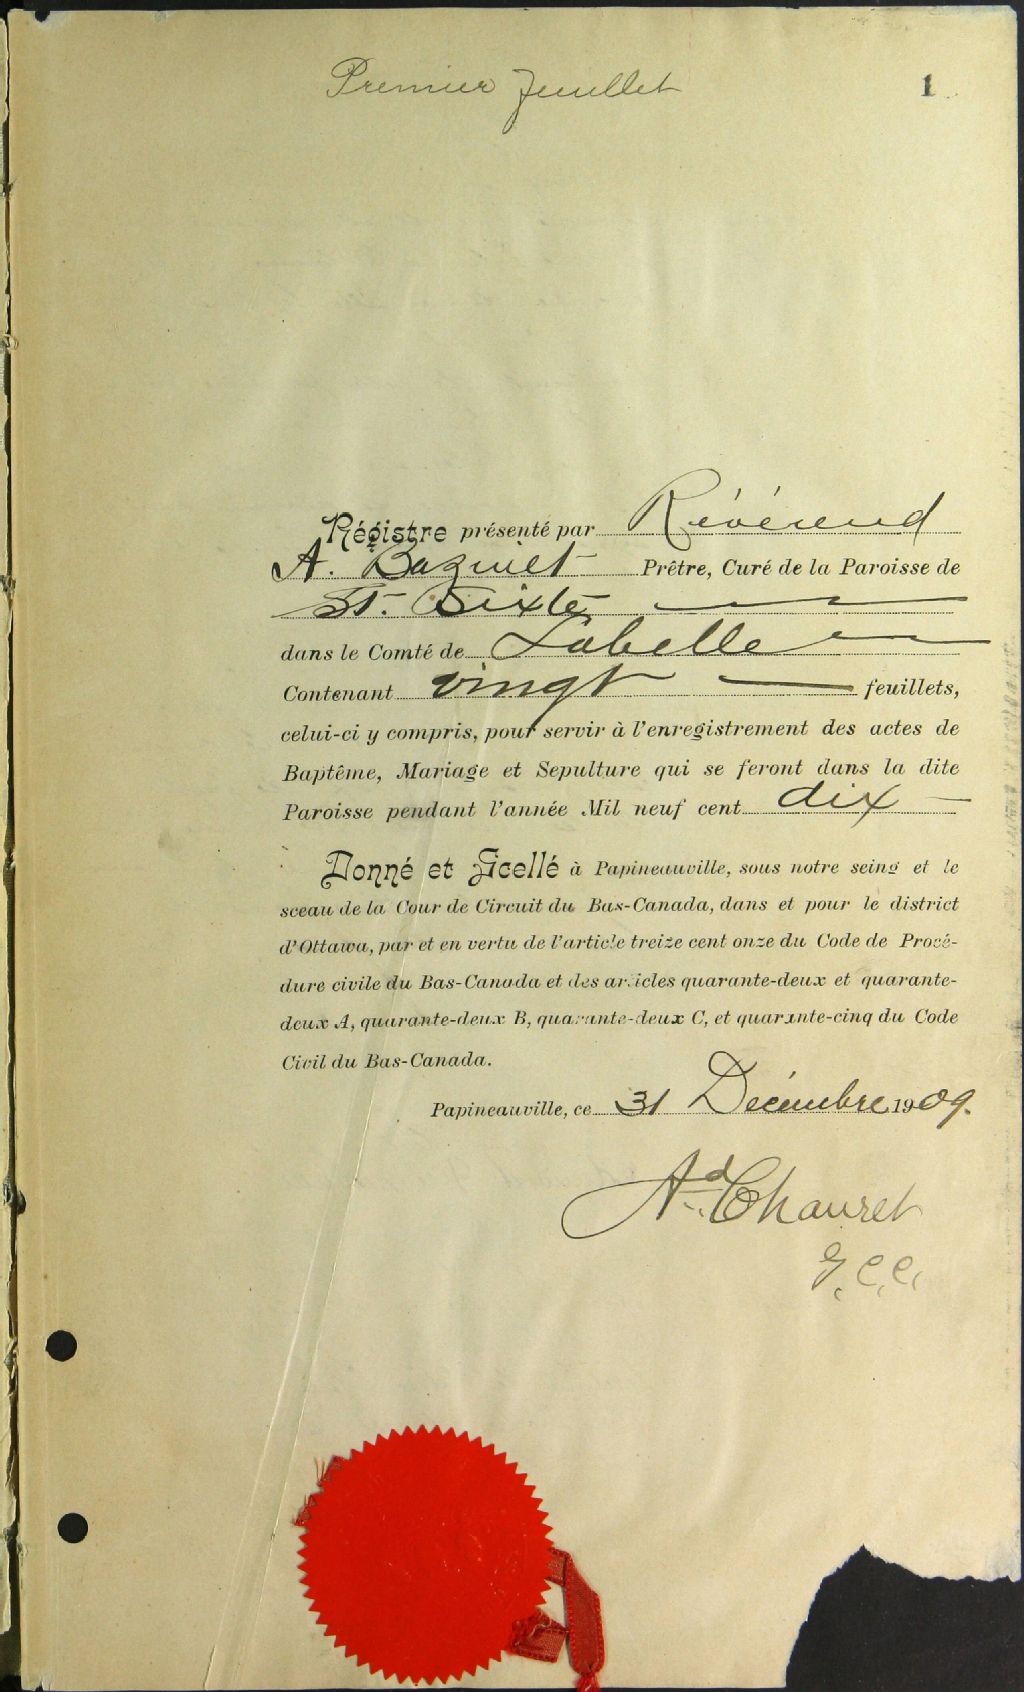 Premier feuillet
1
Régistre présenté par Révérend
A. Bazinet Prêtre, Curé de la Paroisse de
St. Sixte
dans le Comté de Labelle
Contenant vingt feuillets,
celui-ci y compris, pour servir à l'enregistrement des actes de
Baptême, Mariage et Sepulture qui se feront dans la dite
Paroisse pendant l'année Mil neuf cent dix
Donné et Scellé à Papineauville, sous notre seing et le
sceau de la Cour de Circuit du Bas-Canada, dans et pour le district
d'Ottawa, par et en vertu de l'article treize cent onze du Code de Procé-
dure civile du Bas-Canada et des articles quarante-deux et quarante-
deux A, quarante-deux B, quarante-deux C, et quarante-cinq du Code
Civil du Bas-Canada.
Papineauville, ce 31 Décembre 1909.
Ad. Chauret
G.C.C.